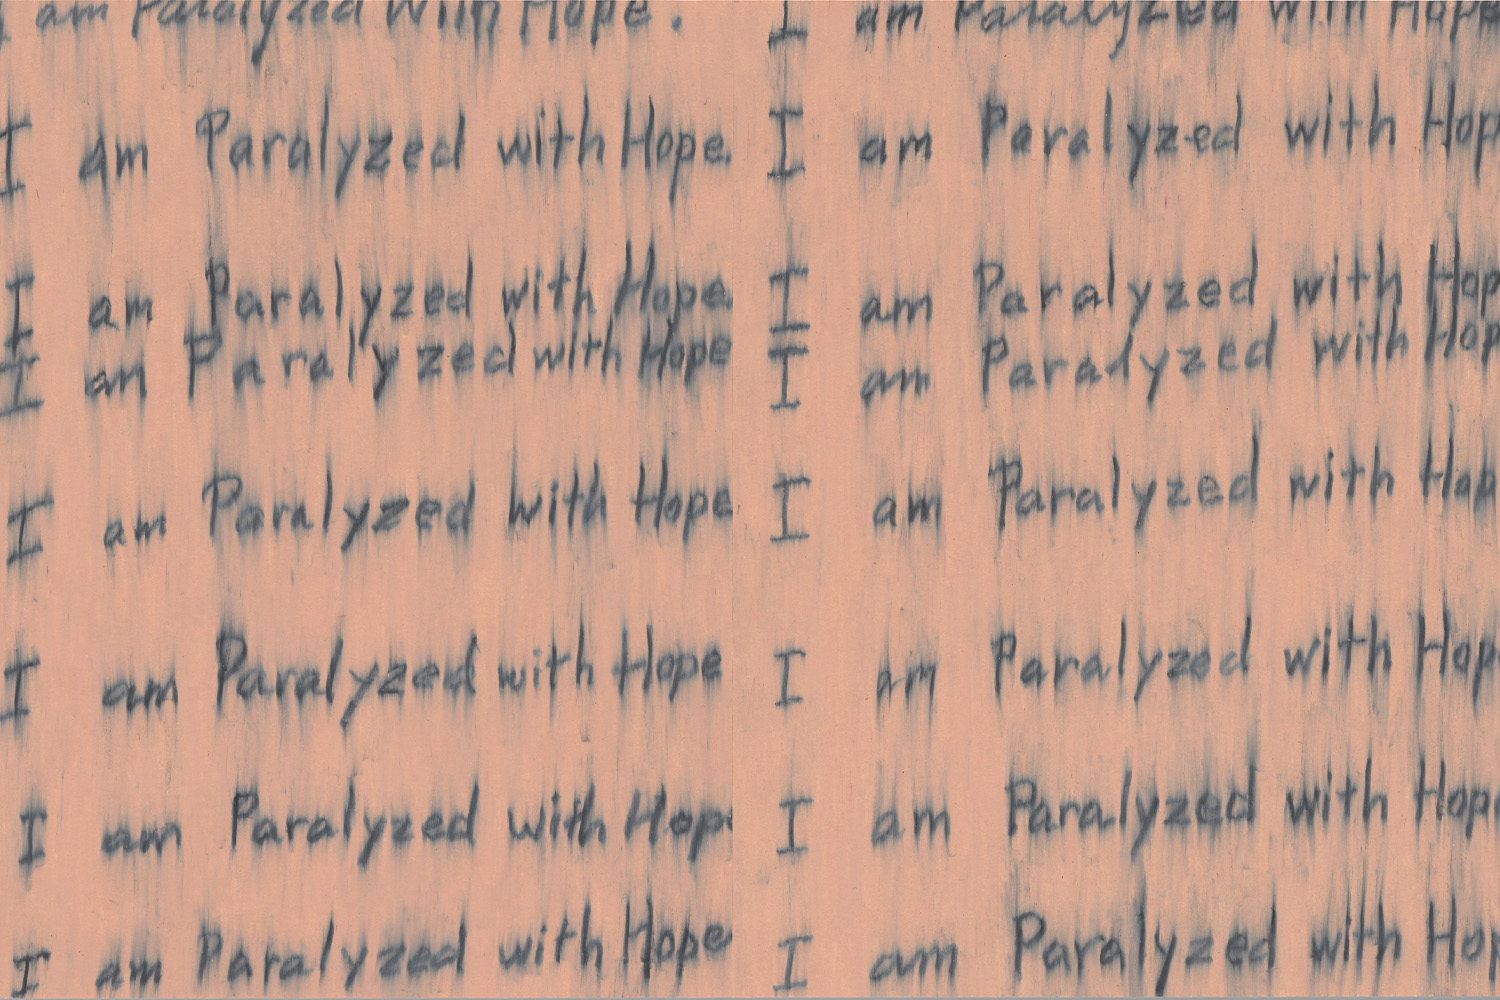 I am Paralyzed with Hope.
I am Paralyzed with Hope.
I am Paralyzed with Hope
I am Paralyzed with Hope
I am Paralyzed with Hope
I am Paralyzed with Hope
I am Paralyzed with Hope
I am Paralyzed with Hope
I am Paralyzed with Hope
I am Paralyzed with Hop
I am Paralyzed with Hop
I am Paralyzed with Hop
I am Paralyzed with Hop
I am Paralyzed with Hop
I am Paralyzed with Hope
I am Paralyzed with Hop